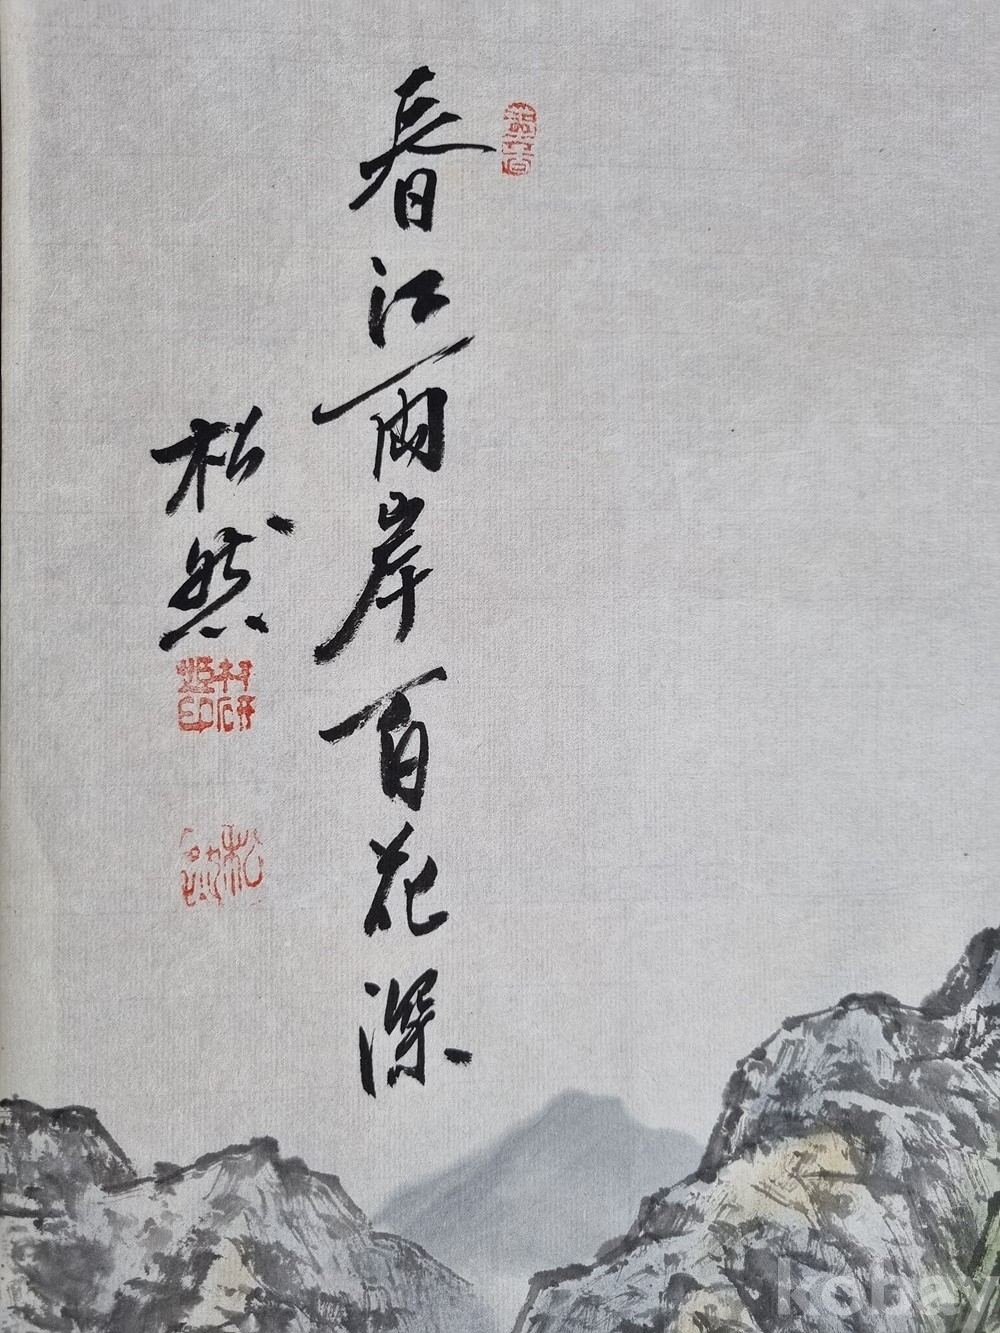 春江兩岸百花深
松然
松然
kobay